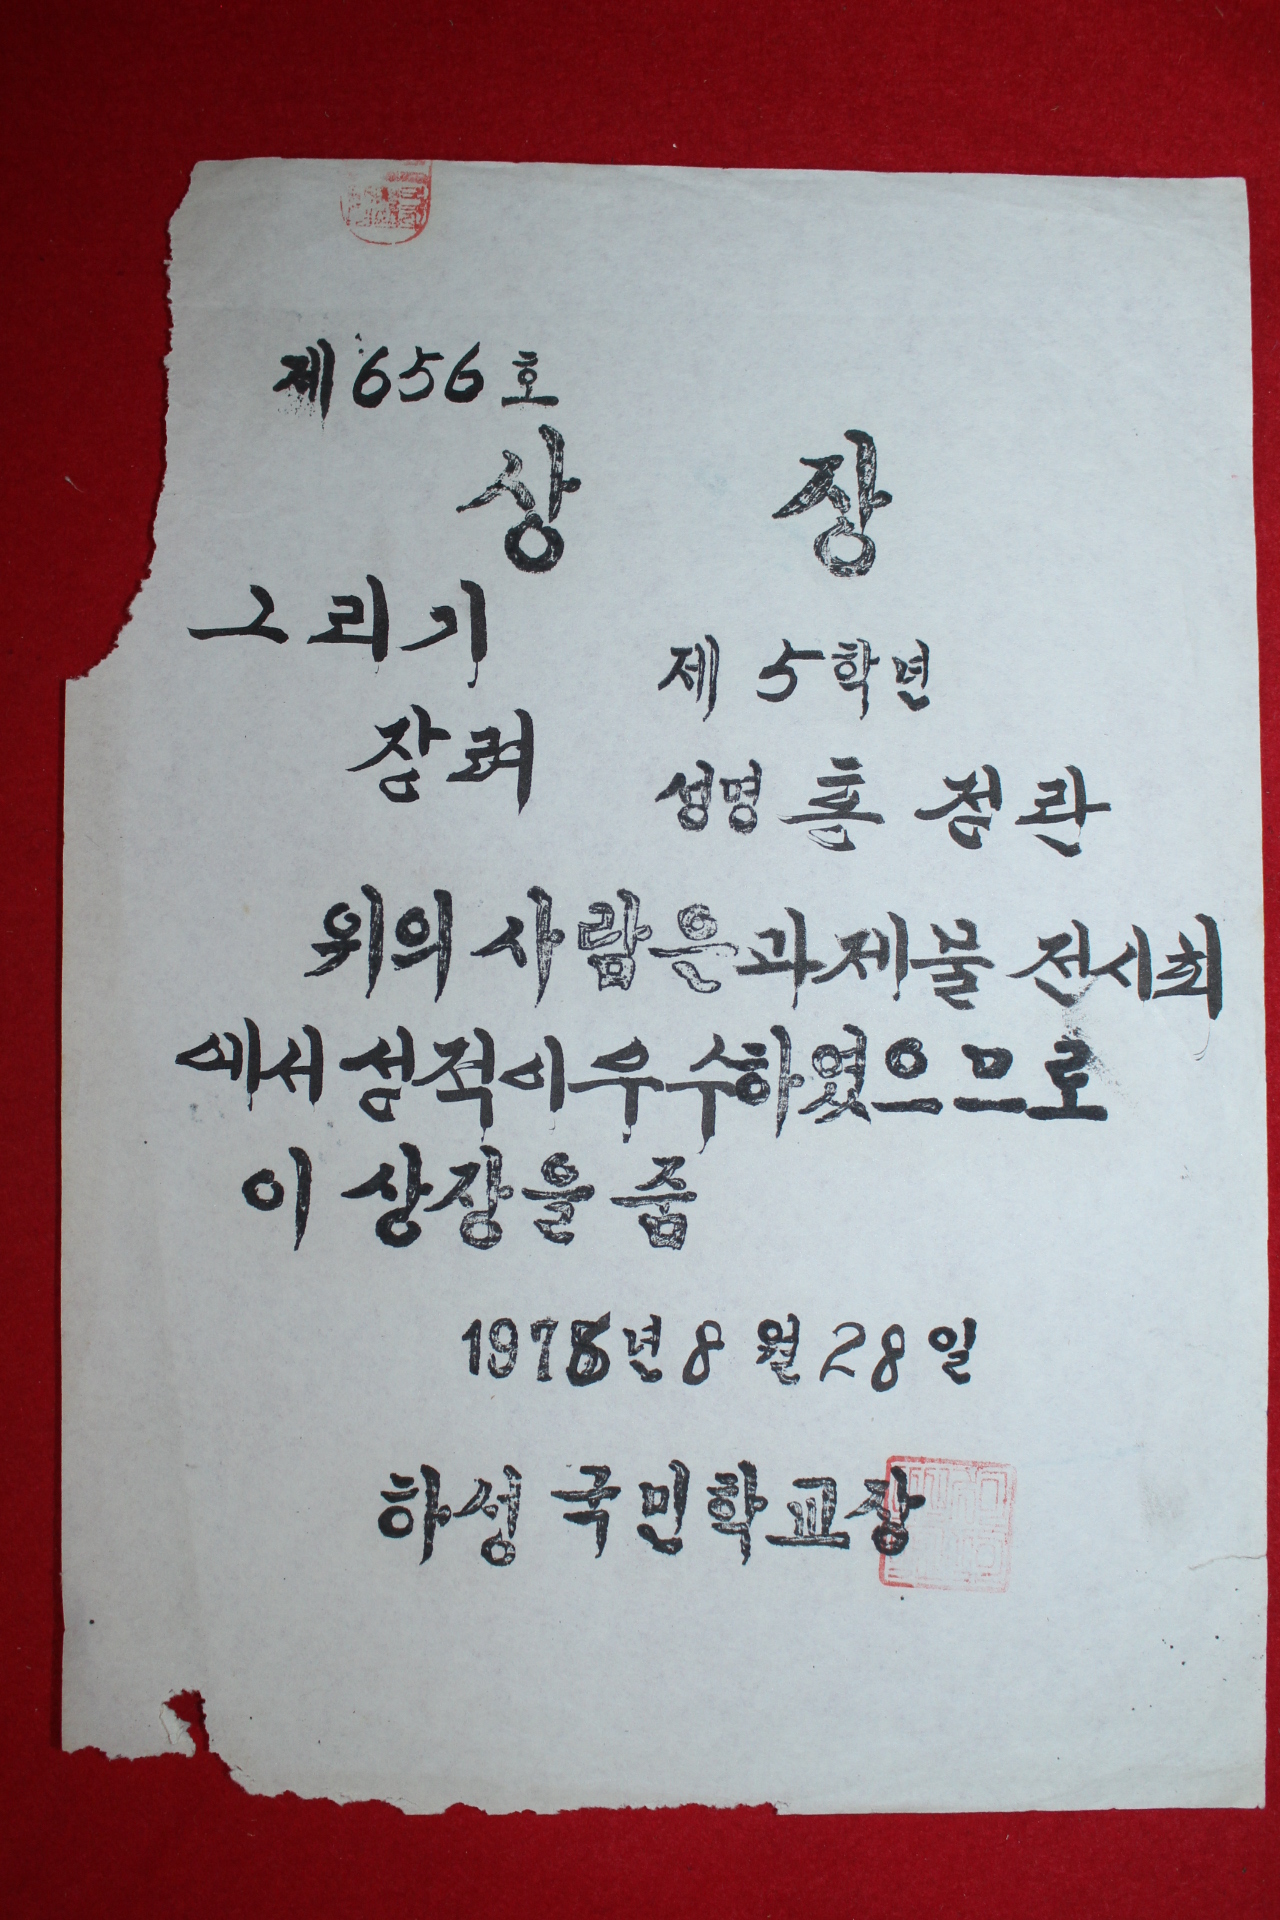 제656호
상 장
그리기
제 5학년
장려
성명 홍 정관
위의 사람을 과제물 전시회
에서 성적이 우수하였으므로
이 상장을 줌
년 8 월 28 일
하성 국민학교장